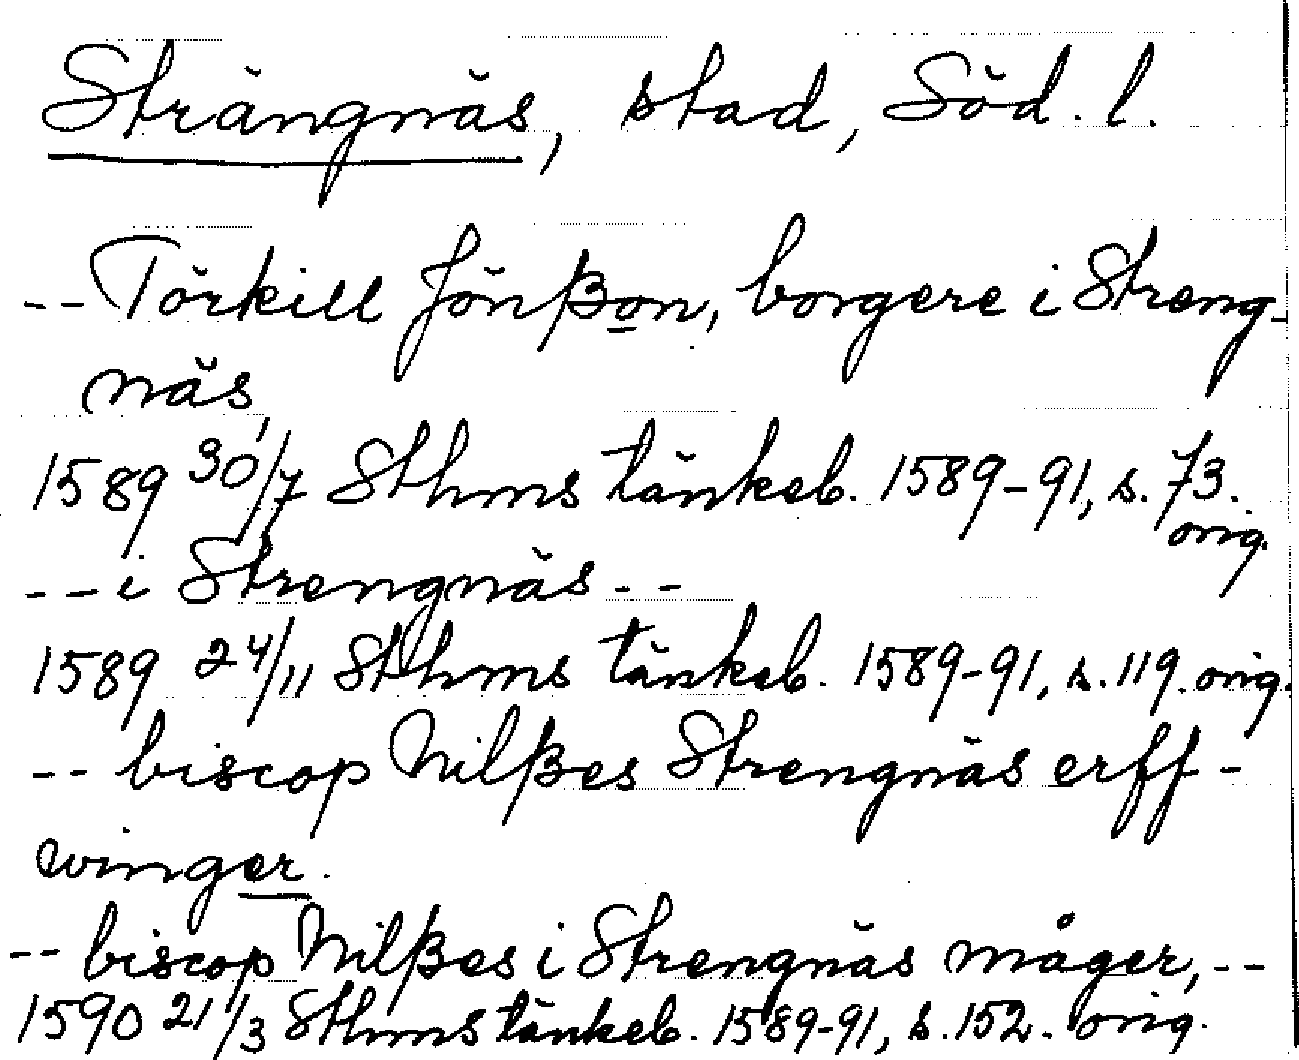 Strängnäs, stad, Söd. l.
-- Törkill Jönßon, borgere i Streng-
näs,
1589 30/7 Sthms tänkeb. 1589-91, s. 73.
orig.
-- i Strengnäs --
1589 24/11 Sthms tänkeb. 1589-91, s. 119. orig.
-- biscop Nilßes Strengnäs erff-
winger.
-- biscop Nilßes i Strengnäs måger, --
1590 21/3 Sthms tänkeb. 1589-91, s. 152. orig.